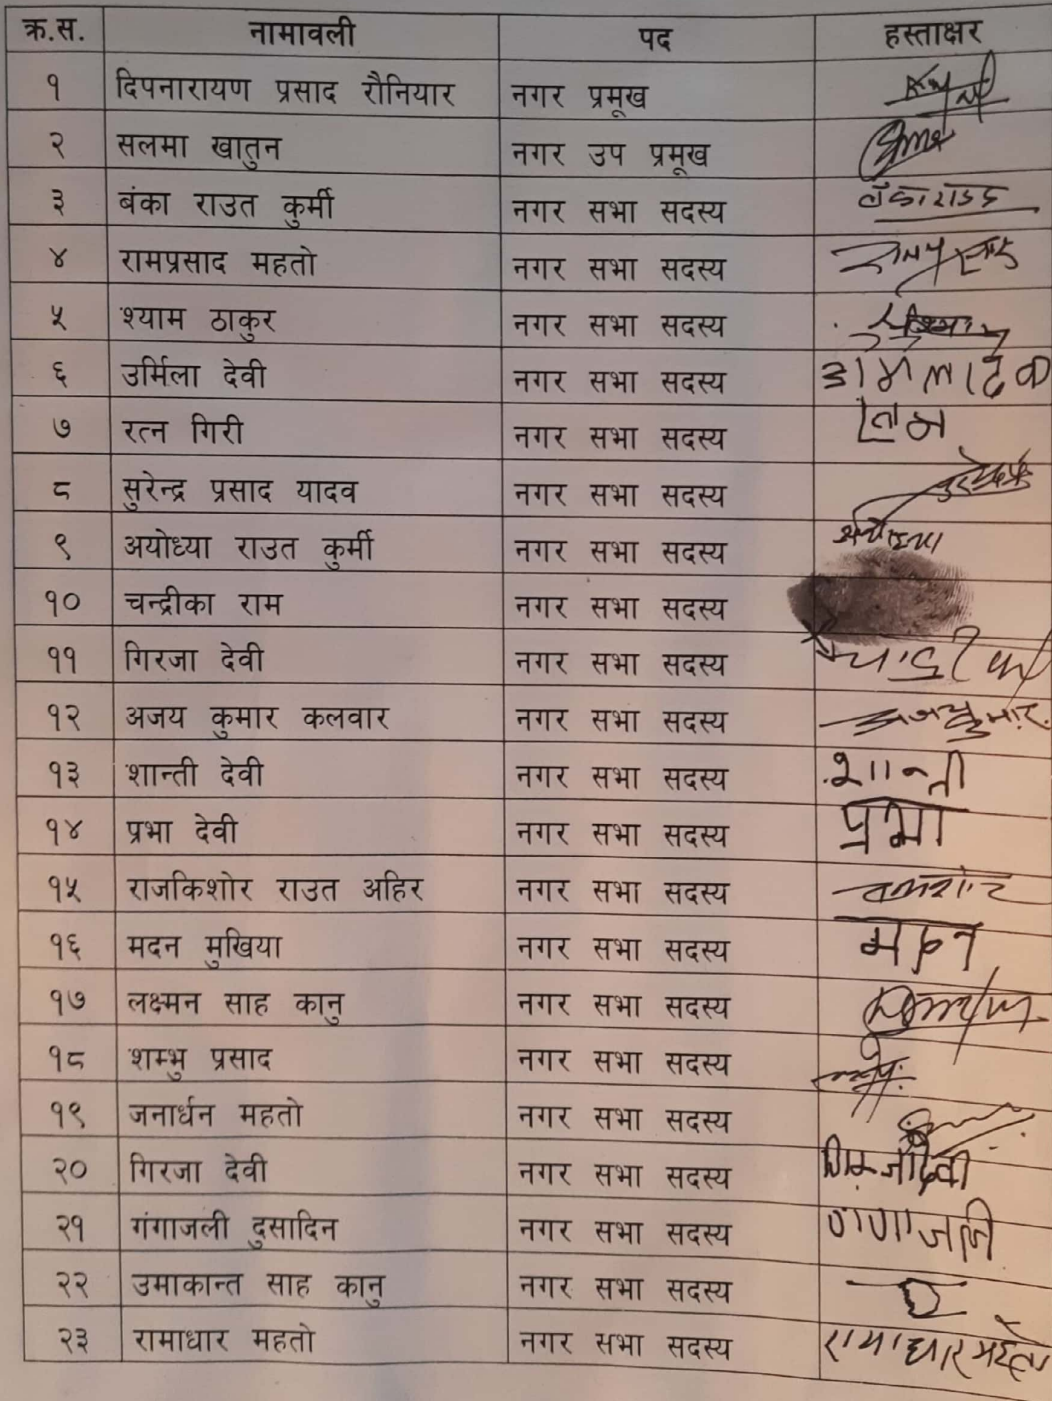 क्र.स. नामावली पद हस्ताक्षर
१ दिपनारायण प्रसाद रौनियार नगर प्रमूख
२ सलमा खातुन नगर उप प्रमूख
३ बंका राउत कुर्मी नगर सभा सदस्य
४ रामप्रसाद महतो नगर सभा सदस्य
५ श्याम ठाकुर नगर सभा सदस्य
६ उर्मिला देवी नगर सभा सदस्य
७ रत्न गिरी नगर सभा सदस्य
८ सुरेन्द्र प्रसाद यादव नगर सभा सदस्य
९ अयोध्या राउत कुर्मी नगर सभा सदस्य
१० चन्द्रीका राम नगर सभा सदस्य
११ गिरजा देवी नगर सभा सदस्य
१२ अजय कुमार कलवार नगर सभा सदस्य अजय कुमार
१३ शान्ती देवी नगर सभा सदस्य शान्ती
१४ प्रभा देवी नगर सभा सदस्य प्रभा
१५ राजकिशोर राउत अहिर नगर सभा सदस्य
१६ मदन मुखिया नगर सभा सदस्य मदन
१७ लक्ष्मन साह कानु नगर सभा सदस्य
१८ शम्भु प्रसाद नगर सभा सदस्य
१९ जनार्धन महतो नगर सभा सदस्य
२० गिरजा देवी नगर सभा सदस्य
२१ गंगाजली दुसादिन नगर सभा सदस्य
२२ उमाकान्त साह कानु नगर सभा सदस्य
२३ रामाधार महतो नगर सभा सदस्य रामाधार महतो